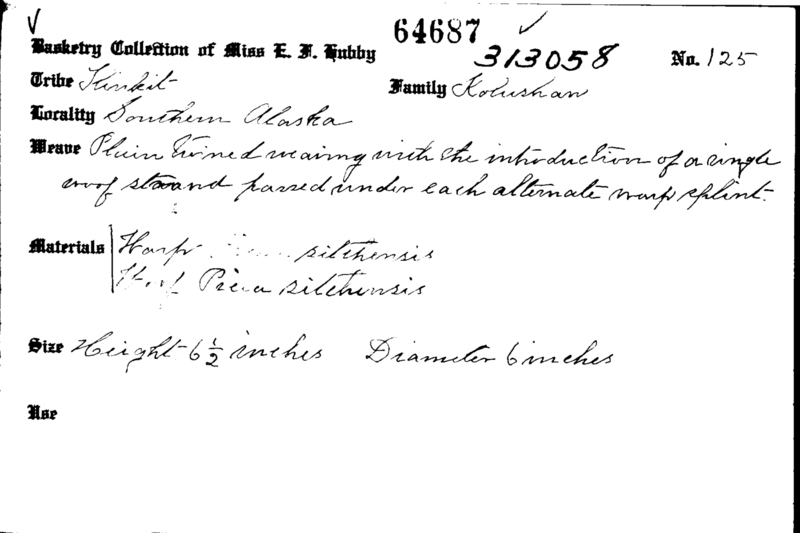 64687
Basketry Collection of Miss E. F. Hubby 313058 No. 125
Tribe Klinkit Family Kolushan
Locality Southern Alaska
Weave Plain twined weaving with the introduction of a single
woof strand passed under each alternate warp splint.
Materials Warp sitchensis
Woof Picea sitchensis
Size Height 6 1/2 inches Diameter 6 inches
Use